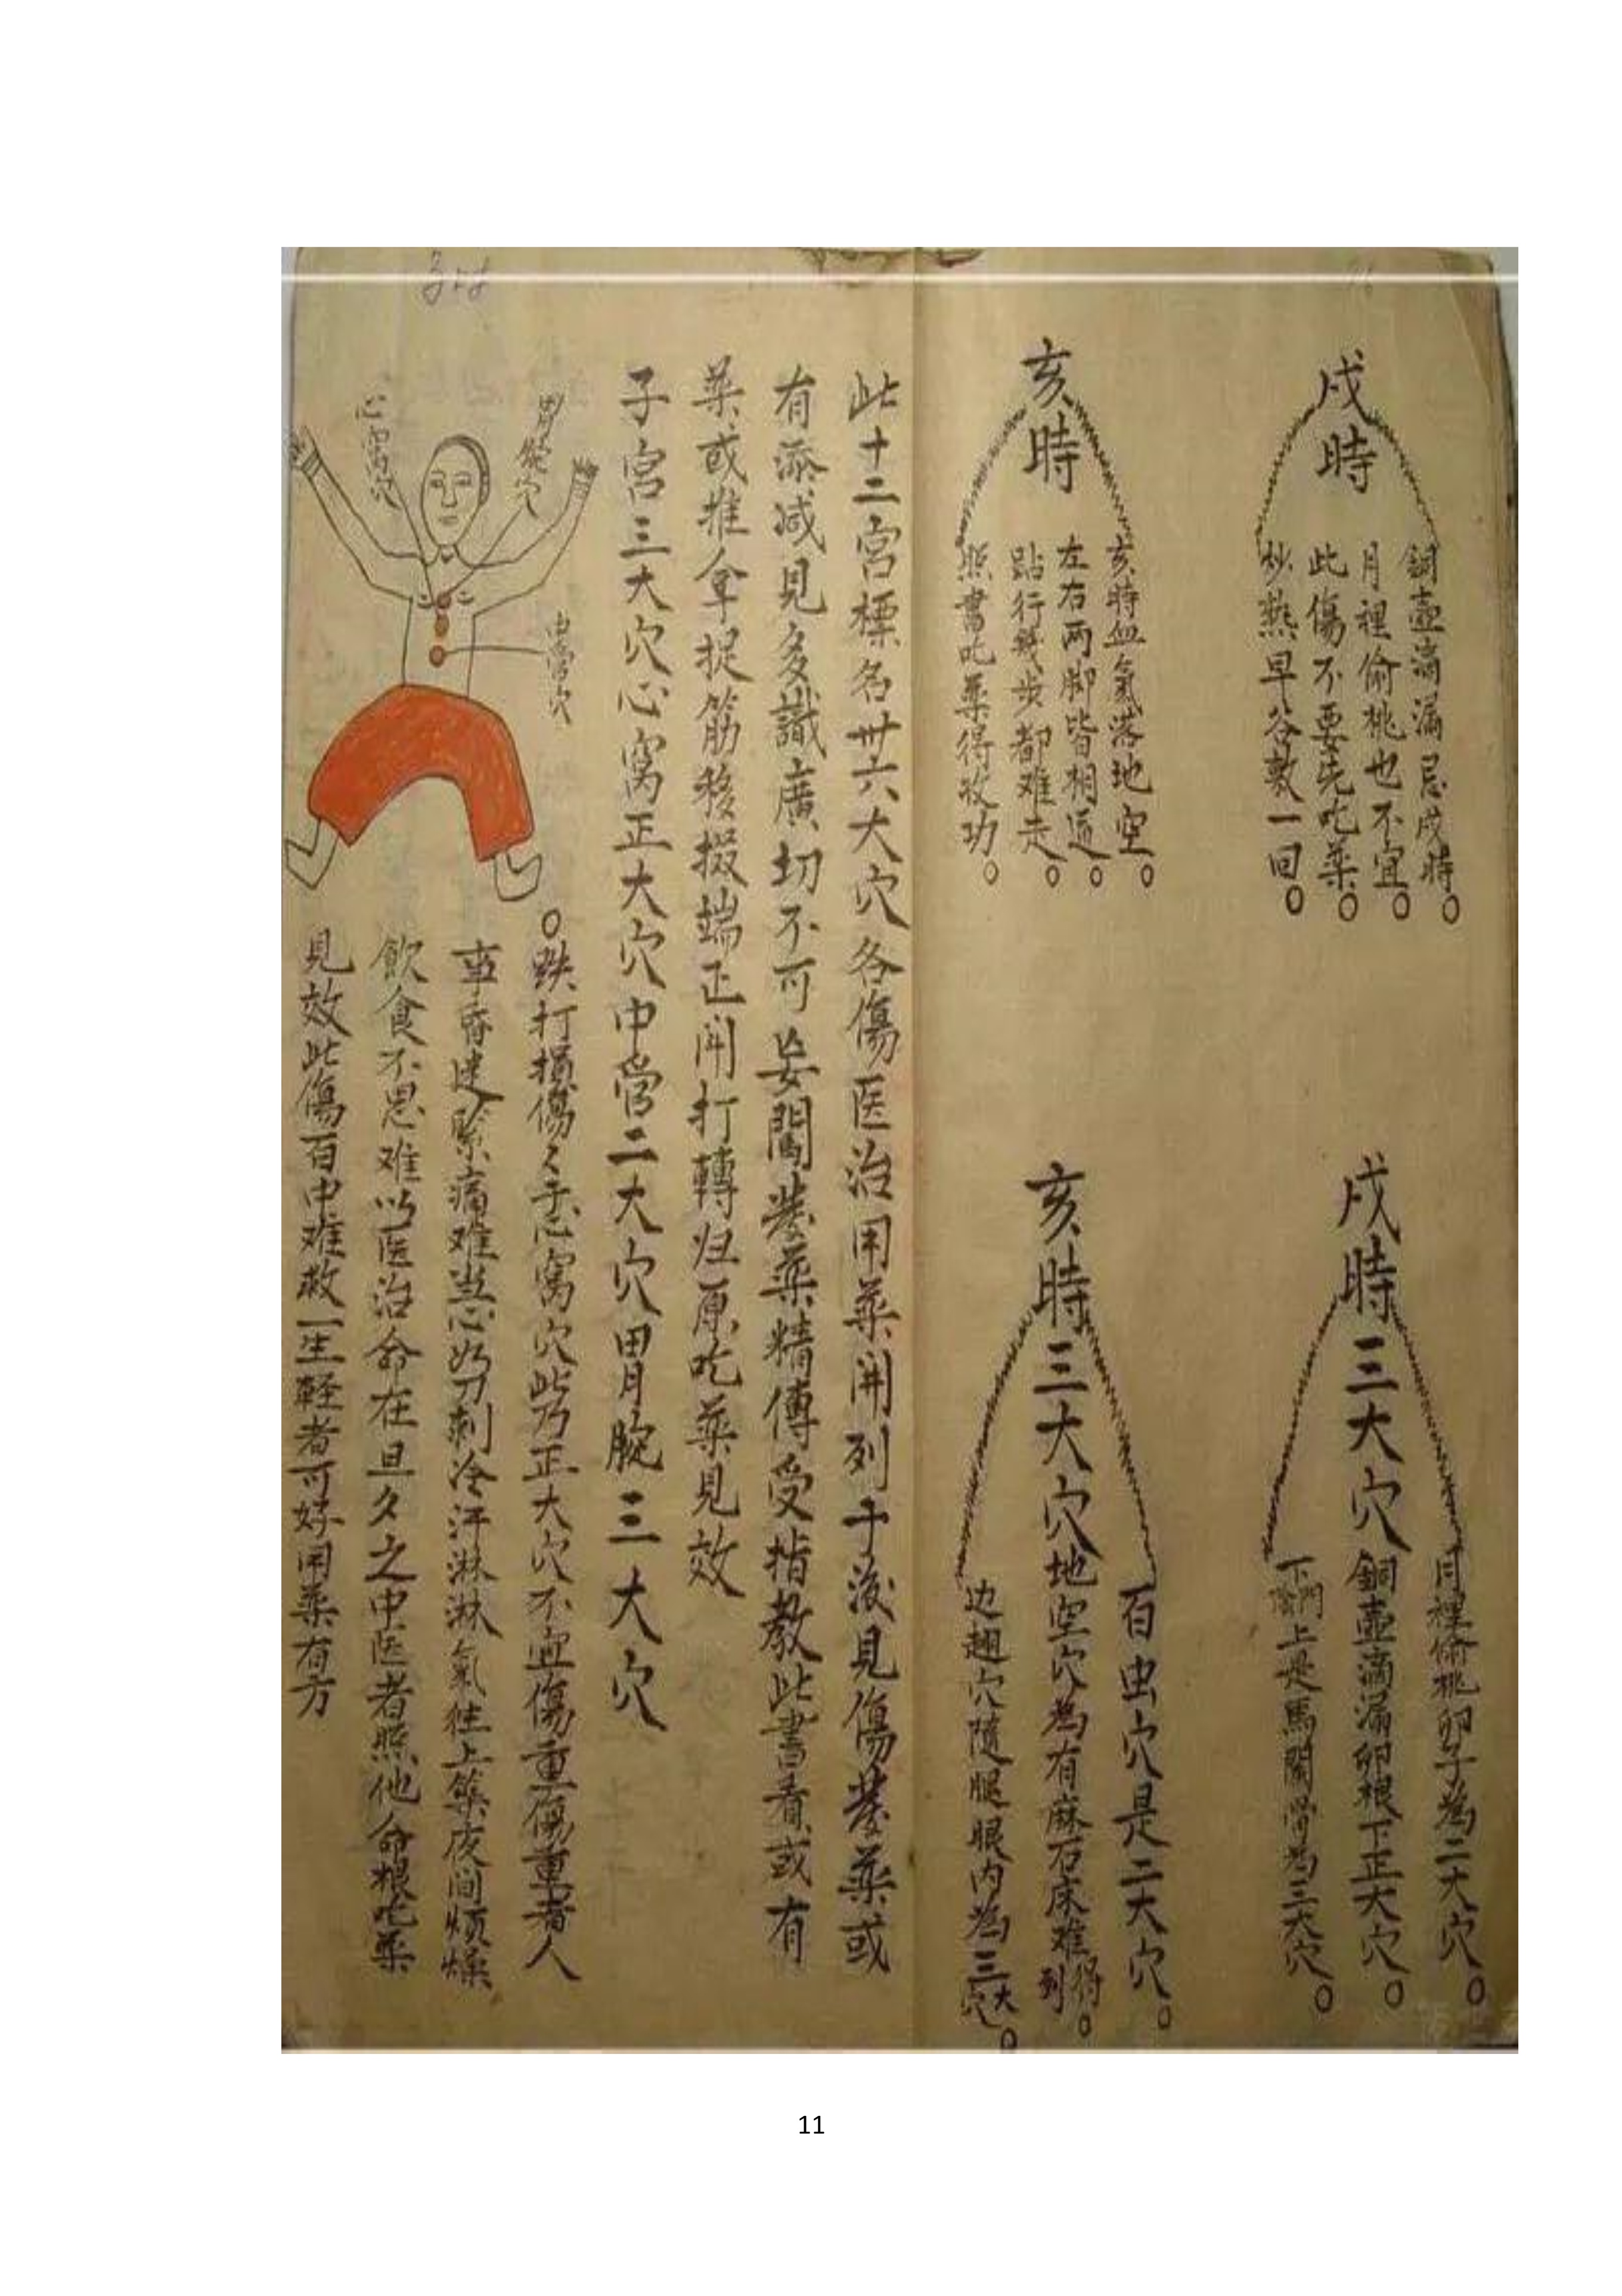 戍時
銅壺滴漏忌戍時。
月裡偷桃也不宜。
此傷不要先吃藥。
炒燕早谷敷一回。
戍時三大穴
月裡偷桃卵子為二大穴。
銅壺滴漏卵根下正大穴。
下陰門上是馬關骨為三大穴。
亥時
亥時血氣落地空。
左右兩脚皆相逼。
跕行幾步都难走。
照書吃藥得收功。
亥時三大穴
百虫穴是二大穴。
地空穴為有麻石床难得列。
边趐穴隨腿眼內為三大穴。
此十二宮標名卅六大穴各傷医治用藥開列于後見傷發藥或
有添减見多識廣切不可妄闖發藥精傳受指教此書看或有
藥或推拿捉筋移掇端正開打轉归原吃藥見效
子宮三大穴心窩正大穴中管二大穴胃腕三大穴
心窩穴
胃腕穴
中宮穴
。跌打損傷々于心窩穴此乃正大穴不宜傷重傷重者人
事昏迷緊痛难当心如刀刺冷汗淋淋氣往上築夜间煩燥
飲食不思难以医治命在旦夕之中医者照他命根吃藥
見效此傷百中难救一生輕者可好用藥有方
3rd
11